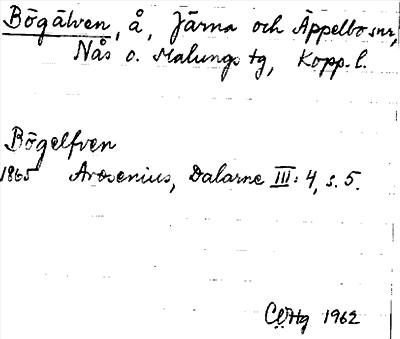 Bögälven, å, Järna och Äppelbo snr,
Nås o. Malungs tg, Kopp. l.
Bögelfven
1865 Arosenius, Dalarne III: 4, s. 5.
1962